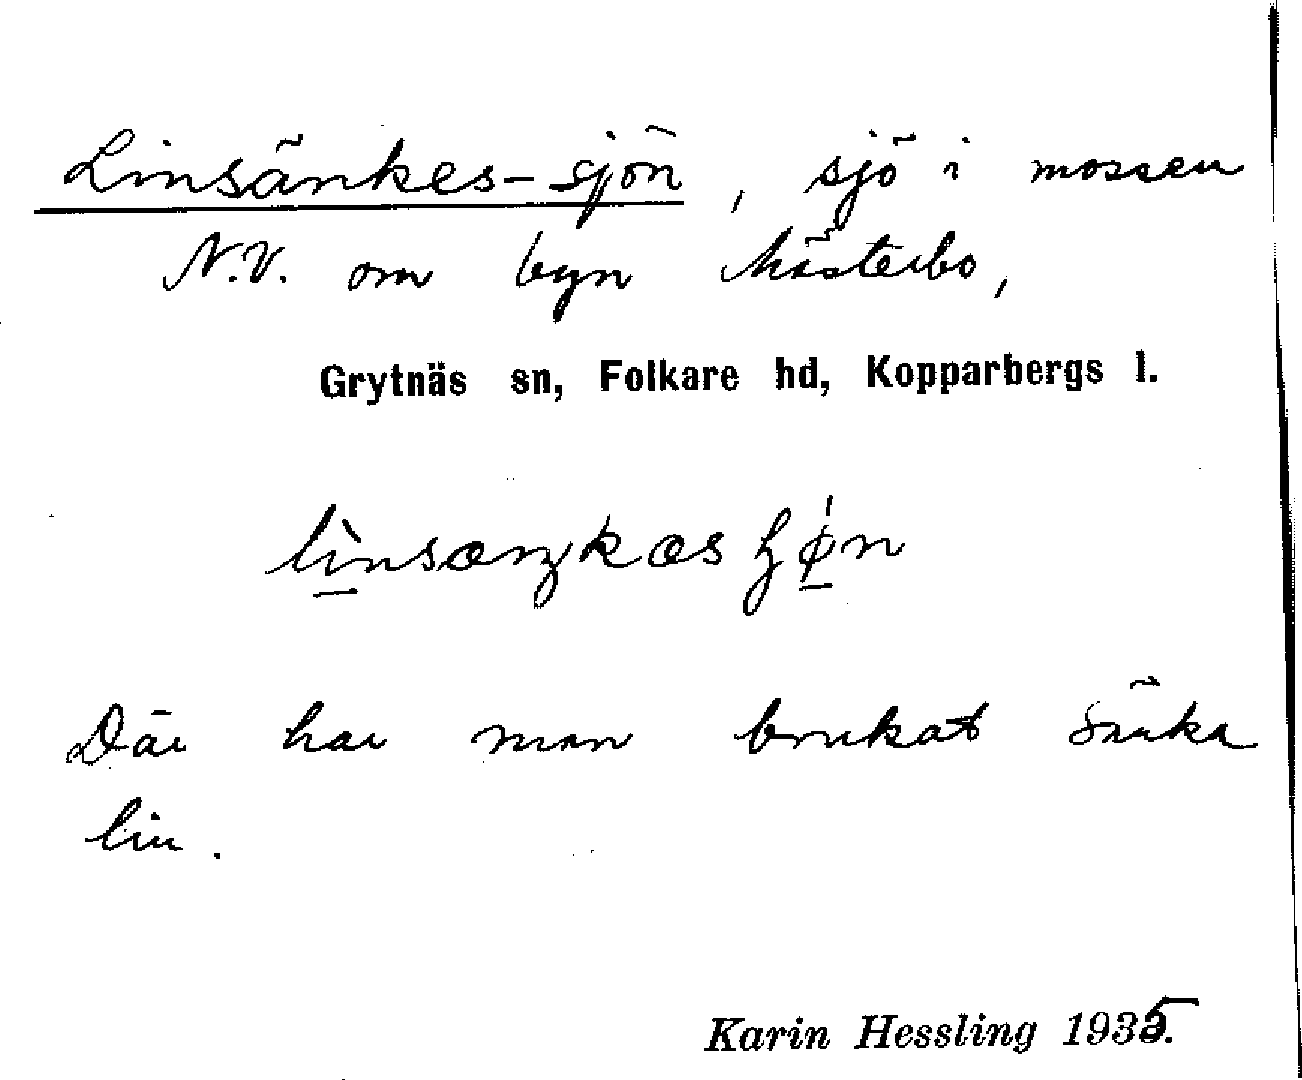 Linsänkes-sjön, sjö i mossen
N.V. om byn Mästerbo,
Grytnäs sn, Folkare hd, Kopparbergs l.
lìnsæŋkæsʃǿn
Där har man brukat sänka
lin.
Karin Hessling 1935.